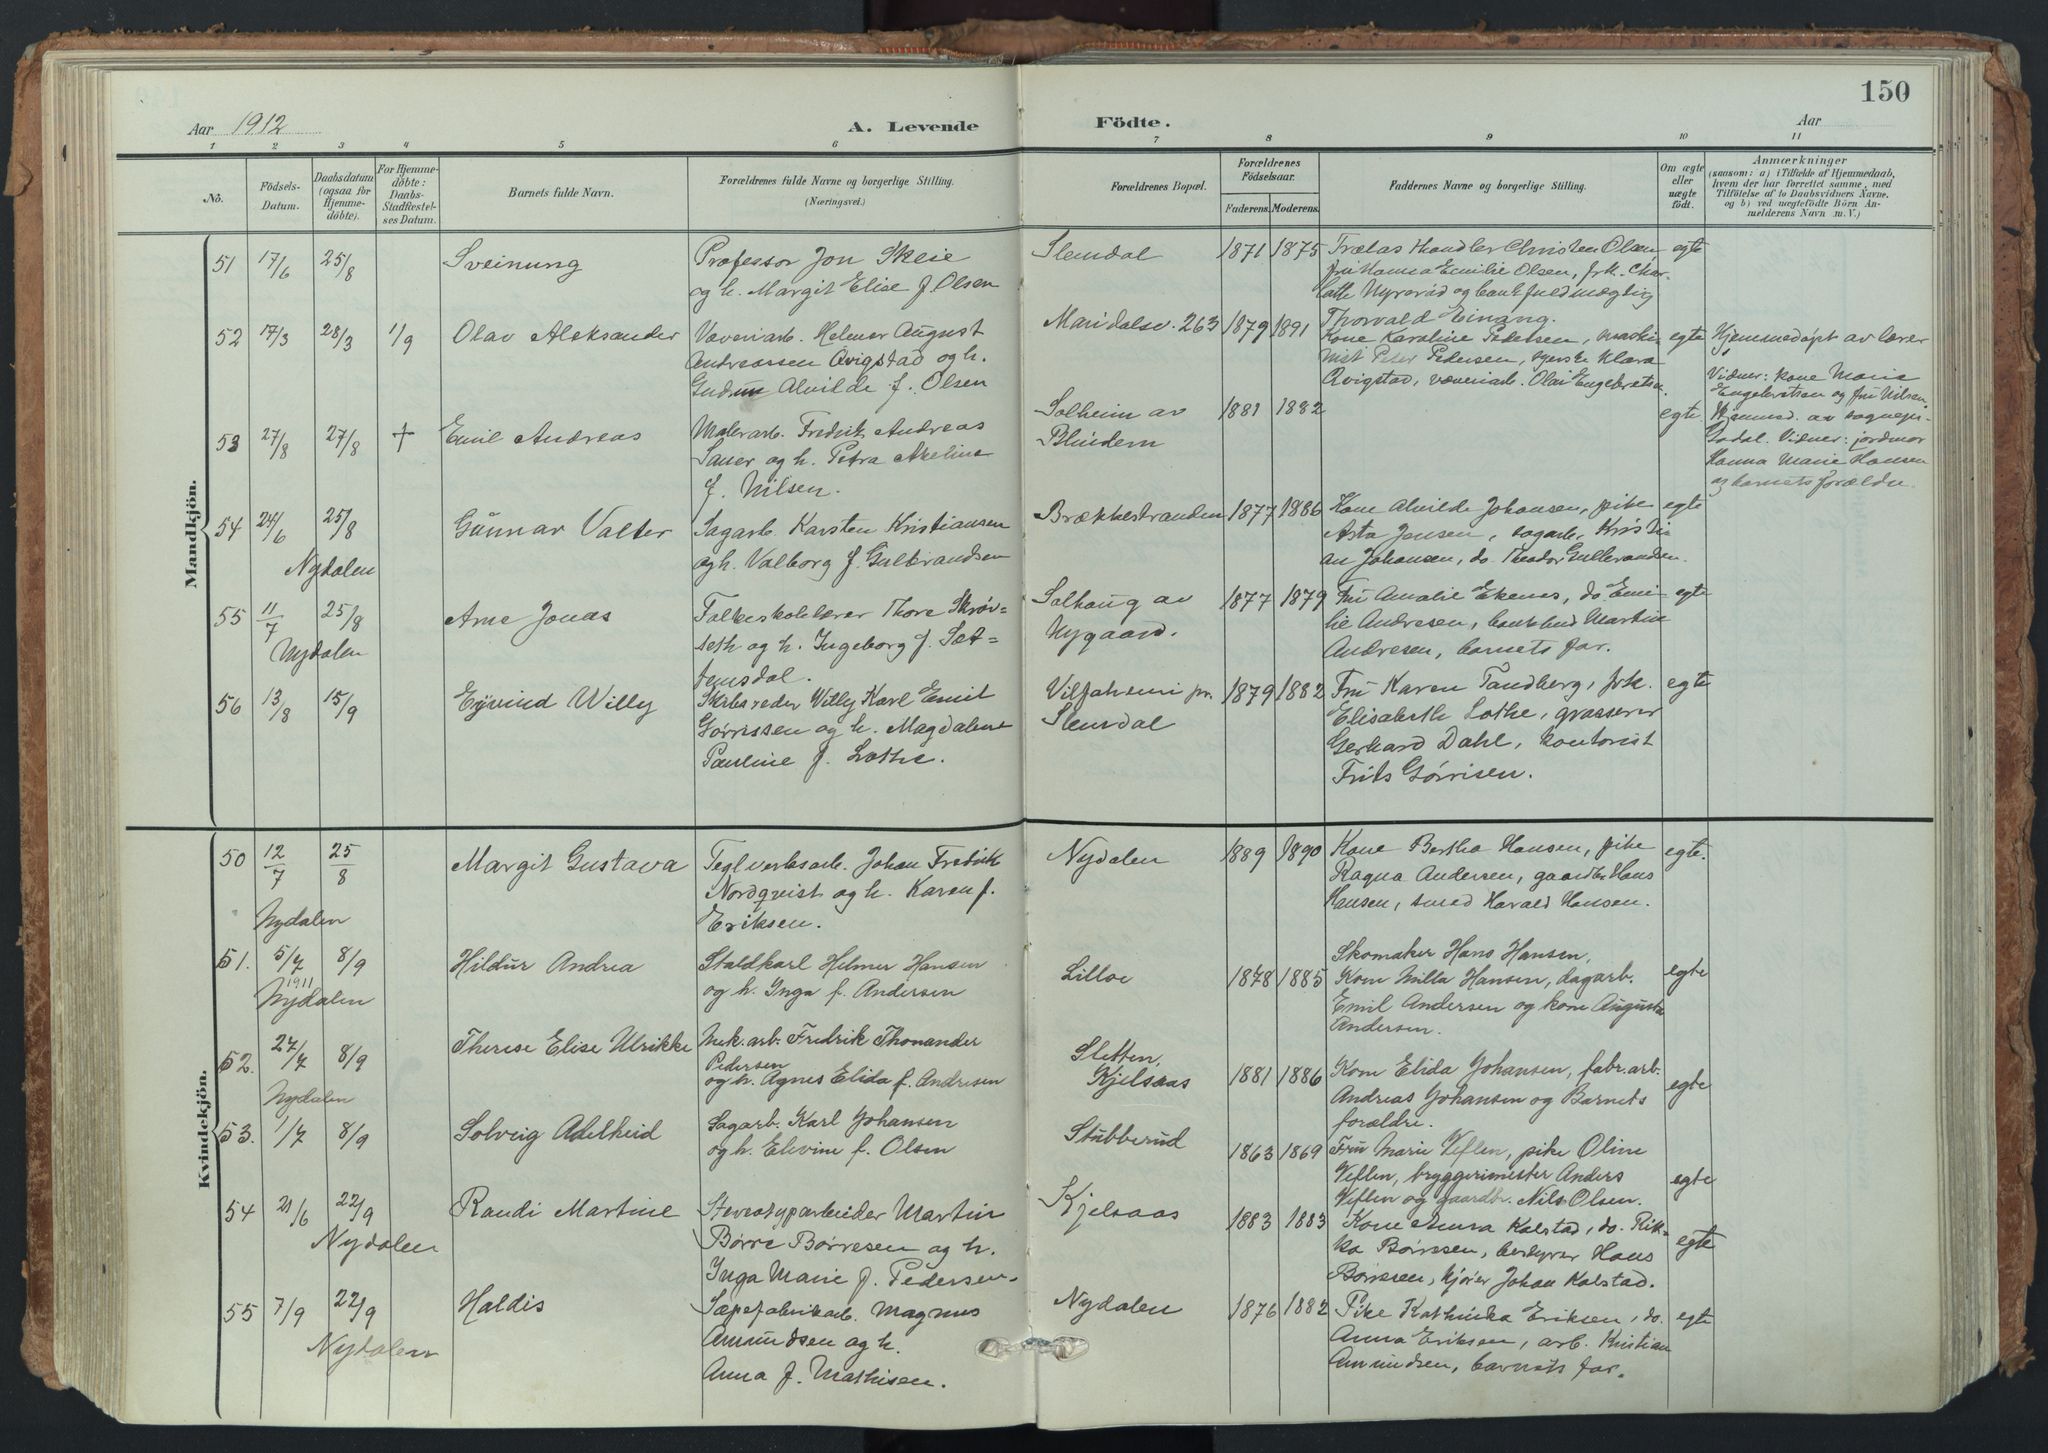 150
Aar 1912
A. Levende
Födte.
Aar
1 2 3 4 5 6 7 8 9 10 11
No.
Födsels-
Datum.
Daabsdatum
(ogsaa for
Hjemme-
döbte).
For Hjemme-
döbte:
Daabs-
Stadfæstel-
ses Datum.
Barnets fulde Navn.
Forældrenes fulde Navne og borgerlige Stilling.
(Næringsvei.)
Forældrenes Bopæl.
Forældrenes
Födselsaar.
Faderens. Moderens.
Faddernes Navne og borgerlige Stilling.
Om ægte
eller
uægte
födt.
Anmærkninger
(saasom: a) i Tilfælde af Hjemmedaab,
hvem der har forrettet samme, med
Tilföielse af to Daabsvidners Navne.
og b) ved uægtefödte Börn An-
melderens Navn m. V.)
Mandkjön.
51 17/6 25/8
Sveinung
Professor Jon Skeie
og h. Margit Elise f. Olsen
Slemdal
1871 1875
Trælasthandler Christen Olsen,
fru Hanna Emilie Olsen, frk. Char-
lotte Nyrerød og bankfuldmægtig
Thorvald Einang.
egte
52 17/3 28/3 1/9
Olav Aleksander
Væveriarb. Helmer August
Andreassen Qvigstad og h.
Gudrun Alvilde f. Olsen
Maridalsv. 263
1879 1891
Kone Karoline Pedersen, maski-
nist Peter Pedersen, syerske Klara
Qvigstad, væveriarb. Olai Engebretsen
egte
Hjemmedøpt av lærer
Vidner: kone Marie
Engebretsen og fru Nilsen,
53 27/8 27/8 †
Emil Andreas
Malerarb. Fredrik Andreas
Sauer og h. Petra Akeline
f. Nilsen.
Solheim av
Blindern
1881 1882
egte.
Hjemmed. av sognepr.
Godal. Vidner: jordmor
Hanna Marie Hansen
og barnets forældre.
54 24/6 25/8
Nydalen
Gunnar Valter
Sagarb. Karsten Kristiansen
og h. Valborg f. Gulbrandsen
Brækkestranden
1877 1886
Kone Alvilde Johansen, pike
Asta Jensen, sagarb. Kristi-
an Johansen, do. Theodor Gulbrandsen.
egte
55 11/7 25/8
Nydalen
Arne Jonas
Folkeskolelærer Thore Skrøv-
seth og h. Ingeborg f. Sæt-
rensdal.
Solhaug av
Nygaard.
1877 1879
Fru Amalie Ekenes, do Emi-
lie Andresen, bankbud Martin
Andresen, barnets far.
egte
56 13/8 15/9
Eyvind Willy
Skibsreder Willy Karl Emil
Gørrissen og h. Magdalene
Pauline f. Lothe.
Slemdal
1879 1882
Fru Karen Tandberg, frk.
Elisabeth Lothe, grosserer
Gerhard Dahl, kontorist
Frits Gørrisen.
egte
Kvindekjön.
50 12/7 25/8
Nydalen
Margit Gustava
Teglverksarb. Johan Fredrik
Nordqvist og h. Karen f.
Eriksen.
Nydalen
1889 1890
Kone Bertha Hansen, pike
Ragna Andersen, gaardbr. Hans
Hansen, smed Harald Hansen.
egte.
51. 5/7 1911 8/9
Nydalen
Hildur Andrea
Staldkarl Helmer Hansen
og h. Inga f. Andersen
Lilloe
1878 1885
Skomaker Hans Hansen,
Kone Milla Hansen, dagarb.
Emil Andersen og kone Augusta
Andersen.
egte
52. 27/7 8/9
Nydalen
Therese Elise Ulrikke
Mek. arb. Fredrik Thorander
Pedersen
og h. Agnes Elida f. Andresen
Sletten,
Kjelsaas
1881 1886
Kone Elida Johansen, fabr. arb.
Andreas Johansen og Barnets
forældre.
egte
53. 1/7 8/9
Solveig Adelheid
Sagarb. Karl Johansen
og h. Elevine f. Olsen
Stubberud
1863 1869
Fru Marie Veflen, pike Oline
Veflen, bryggerimester Anders
Veflen og gaardbr. Nils Olsen.
egte
54 21/6 22/9
Nydalen
Randi Martine
Stereotyparbeider Martin
Børre Børresen og h.
Inga Marie f. Pedersen.
Kjelsaas
1883 1883
Kone Anna Kolstad, do. Rik-
ka Børresen, bestyrer Hans
Børresen, kjører Johan Kolstad.
egte
55 7/9 22/9
Nydalen
Haldis
Sæpefabrikarb. Magnus
Amundsen og h.
Anna f. Mathisen.
Nydalen
1876 1882
Pike Kathinka Eriksen, do.
Anna Eriksen, arb. Kristian
Amundsen, barnets far.
egte